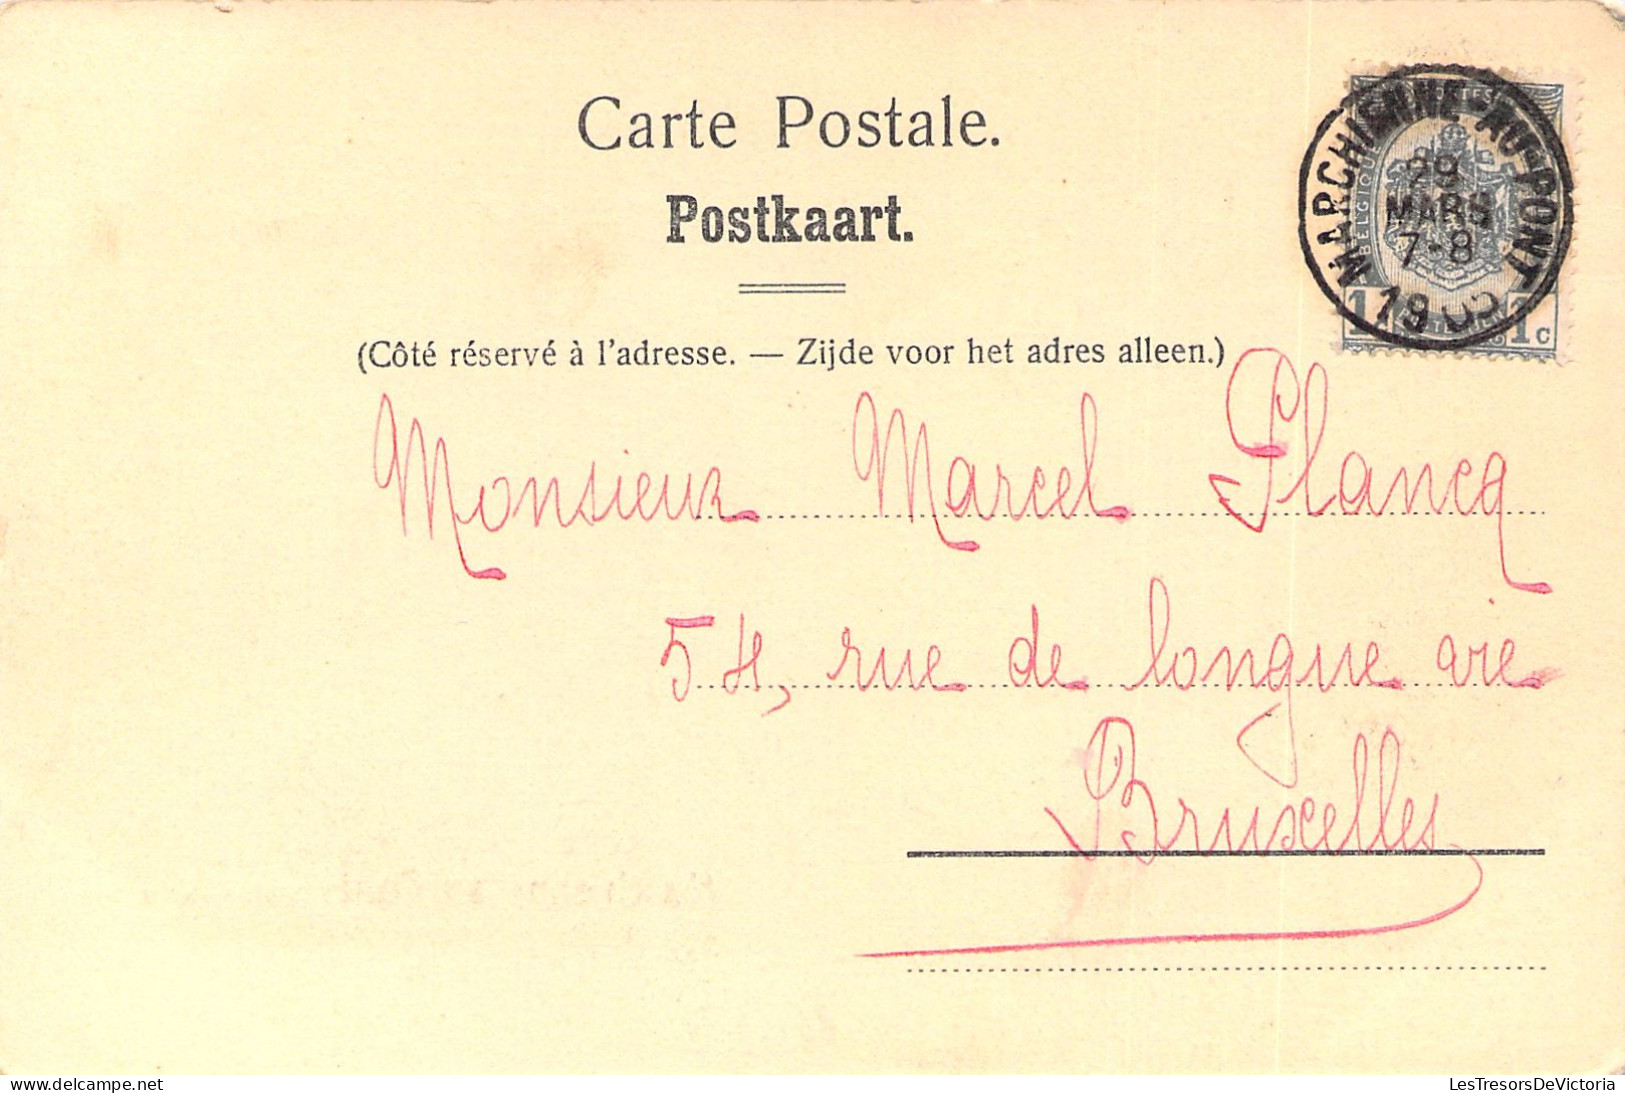 Carte Postale.
Postkaart.
(Côté réservé à l'adresse. — Zijde voor het adres alleen.)
MARCHIENNE-AU-PONT
29
MARS
7-8
BELGIQUE
1 1c
Monsieur Marcel Plancq
54, rue de longue vie
Bruxelles
delcampe.net
LesTresorsDeVictoria